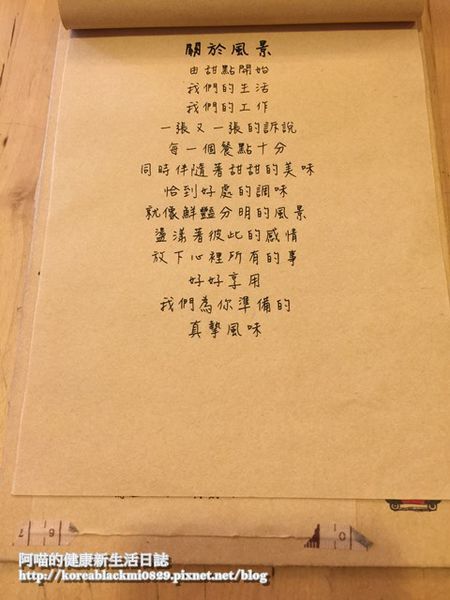 關於風景
由甜點開始
我們的生活
我們的工作
一張又一張的訴說
每一個餐點十分
同時伴隨著甜甜的美味
恰到好處的調味
就像鮮豔分明的風景
盪漾著彼此的感情
放下心裡所有的事
好好享用
我們為你準備的
真摯風味
阿喵的健康新生活日誌
http://koreablackmi0829.pixnet.net/blog